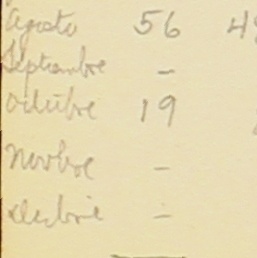 Agosto 56 4
Septiembre -
Octubre 19
Novbre -
Dicbre -